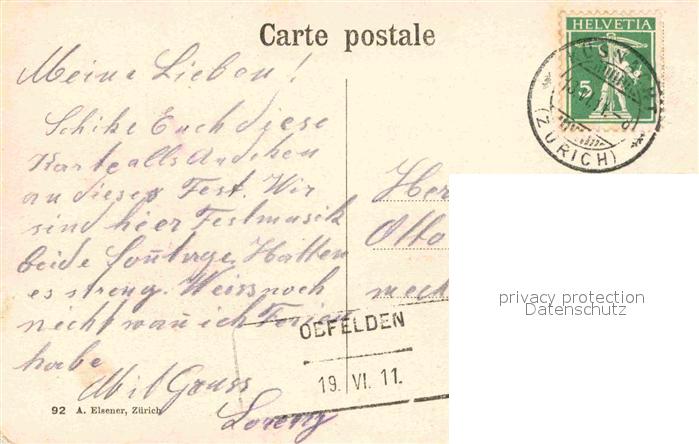 Carte postale
HELVETIA
5
(ZÜRICH)
Meine Lieben!
Schike Euch diese
Karte alls Andeken
an dieses Fest. Wir
sind hier Festmusik
beide Son̄tage. Hatten
es streng. Weiss noch
nicht wan̄ ich Ferien
habe
Mit Gruss
Lorenz
Her
Otto
mech
OBFELDEN
19. VI. 11.
92 A. Elsener, Zürich
privacy protection
Datenschutz